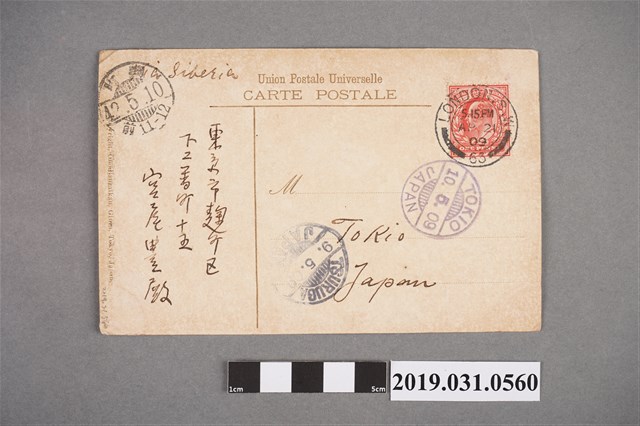 Via Siberia
Union Postale Universelle
CARTE POSTALE
42.5.10
前11-12
LONDON.S.W
5.15PM
AP 21
09
TOKIO
10.5.09
JAPAN
東京市麹町区
下二番町十五
宮尾
殿
M
Tokio
Japan
TSURUGA
9.5.
1cm
5cm
2019.031.0560